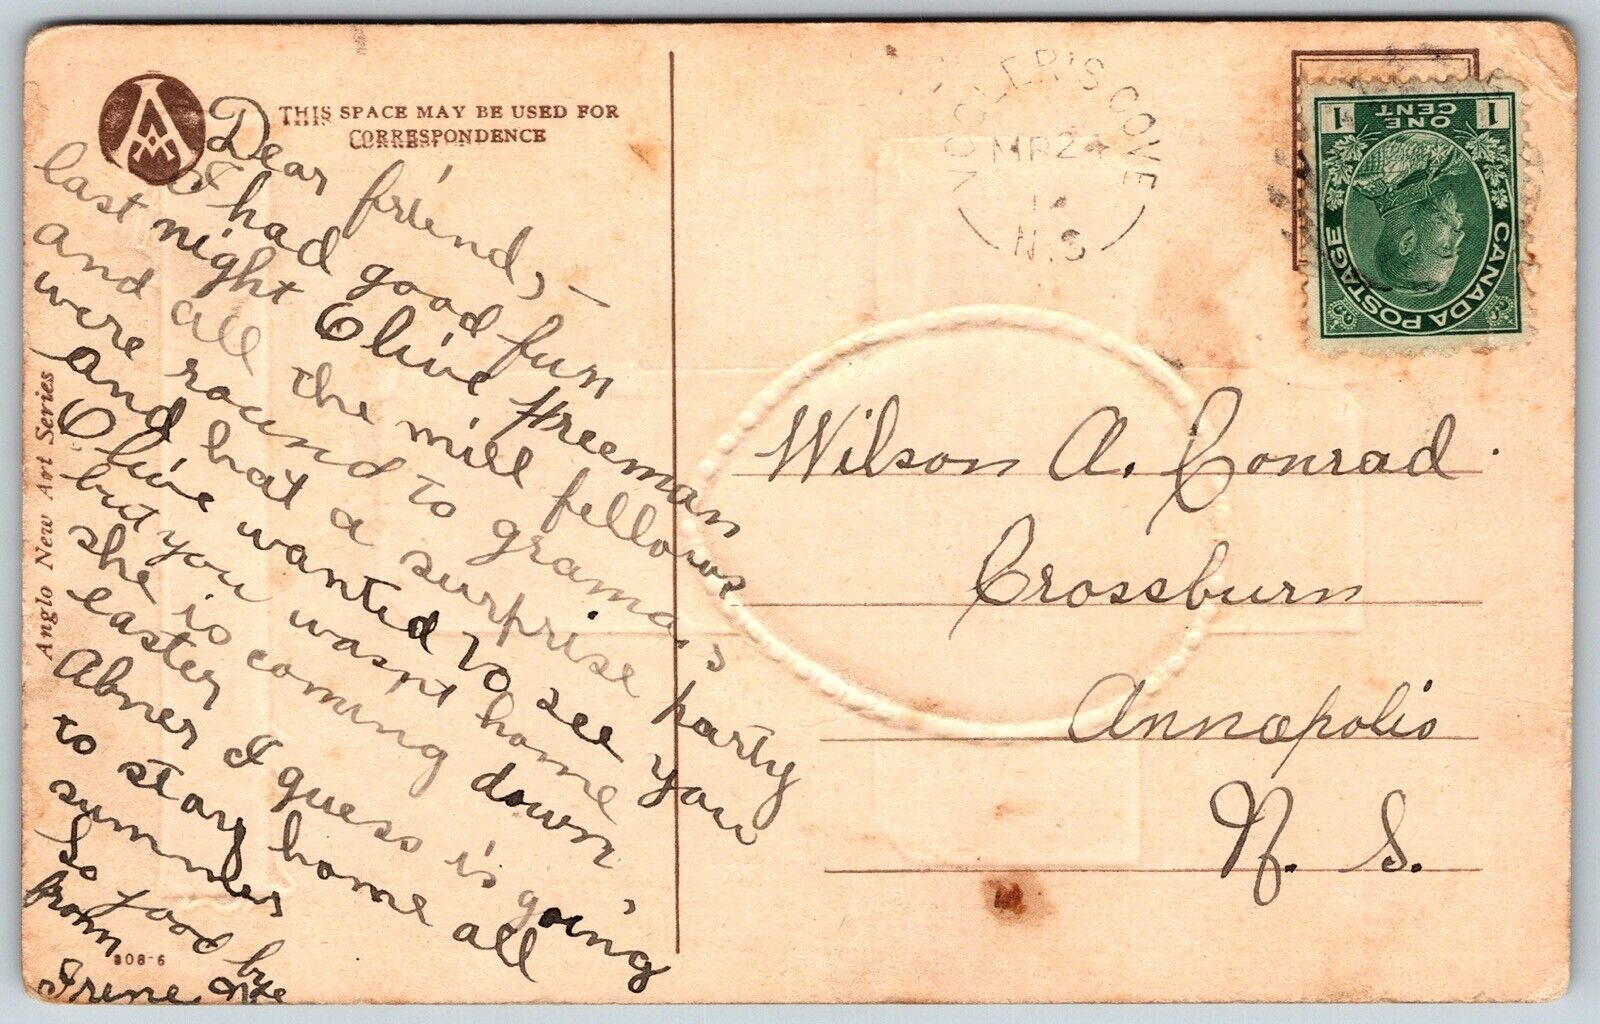 THIS SPACE MAY BE USED FOR
CORRESPONDENCE
Dear friend, –
I had good fun
last night Olive Freeman
and all the mill fellows
were round to grama's
and hat a surprise party
Olive wanted to see you
but you wasnt home
she is coming down
easter
Abner I guess is going
to stay home all
summer
So good bye
from
Irene
Anglo New Art Series
808-6
VOGLER'S COVE
MR 24
N.S
CANADA POSTAGE
1 ONE CENT 1
Wilson A. Conrad.
Crossburn
Annapolis
N. S.